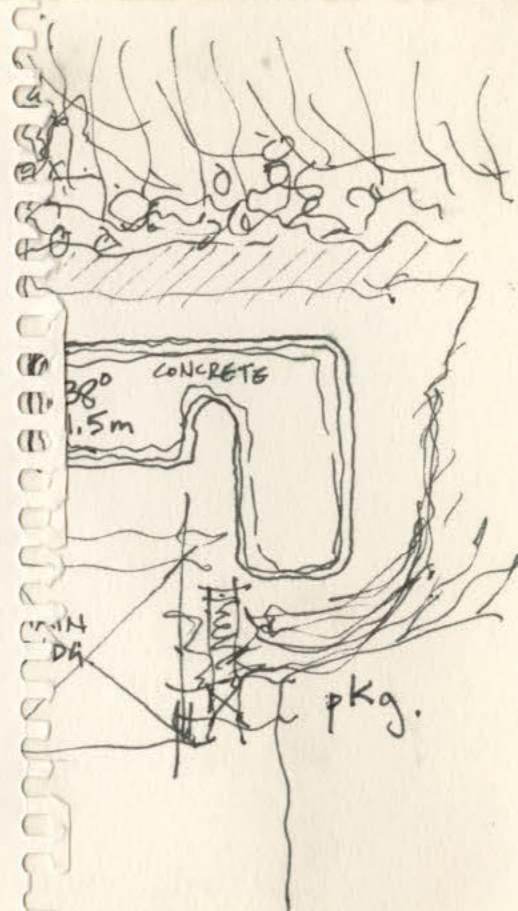 CONCRETE
38°
1.5m
pkg.